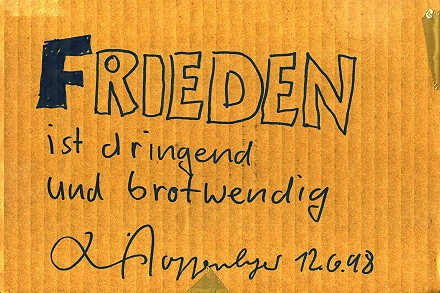 FRIEDEN
ist dringend
und brotwendig
12.6.98